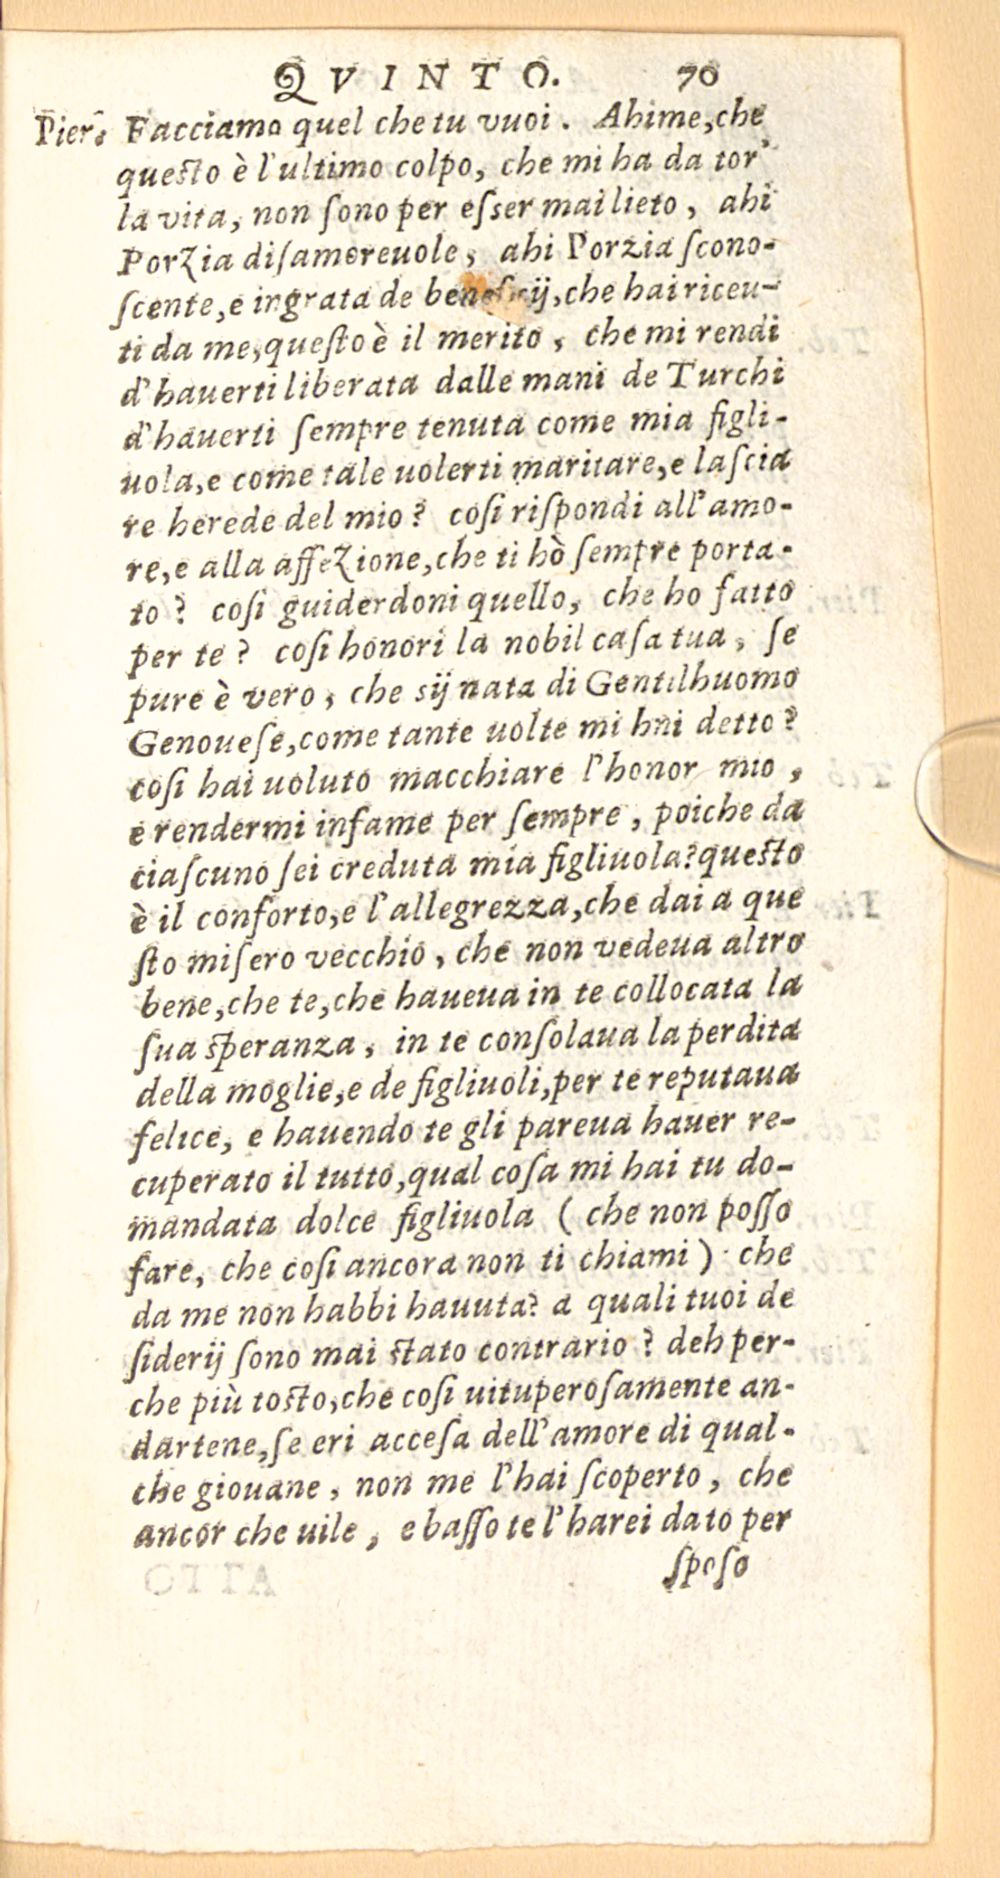 QVINTO. 70
Pier. Facciamo quel che tu vuoi. Ahime, che
questo è l'ultimo colpo, che mi ha da tor'
la vita, non ſono per eſser mai lieto, ahi
Porzia diſamoreuole, ahi Porzia ſcono-
ſcente, e ingrata de beneficij, che hai riceu-
ti da me, queſto è il merito, che mi rendi
d'hauerti liberata dalle mani de Turchi
d'hauerti ſempre tenuta come mia figli-
uola, e come tale uolerti maritare, e laſcia
re herede del mio? coſi riſpondi all'amo-
re, e alla affezione, che ti hò ſempre porta-
to? coſi guiderdoni quello, che ho fatto
per te? coſi honori la nobil caſa tua, ſe
pure è vero, che sij nata di Gentilhuomo
Genoueſe, come tante uolte mi hai detto?
coſi hai uoluto macchiare l'honor mio,
e rendermi infame per ſempre, poiche da
ciaſcuno ſei creduta mia figliuola? questo
è il conforto, e l'allegrezza, che dai a que
ſto miſero vecchio, che non vedeua altro
bene, che te, che haueua in te collocata la
ſua speranza, in te conſolaua la perdita
della moglie, e de figliuoli, per te reputaua
felice, e hauendo te gli pareua hauer re-
cuperato il tutto, qual coſa mi hai tu do-
mandata dolce figliuola (che non poſſo
fare, che coſi ancora non ti chiami) che
da me non habbi hauuta? a quali tuoi de
ſiderij ſono mai stato contrario? deh per-
che più tosto, che coſi uituperoſamente an-
dartene, ſe eri acceſa dell'amore di qual-
che giouane, non me l'hai ſcoperto, che
ancor che uile, e baſſo te l'harei dato per
ſpoſo